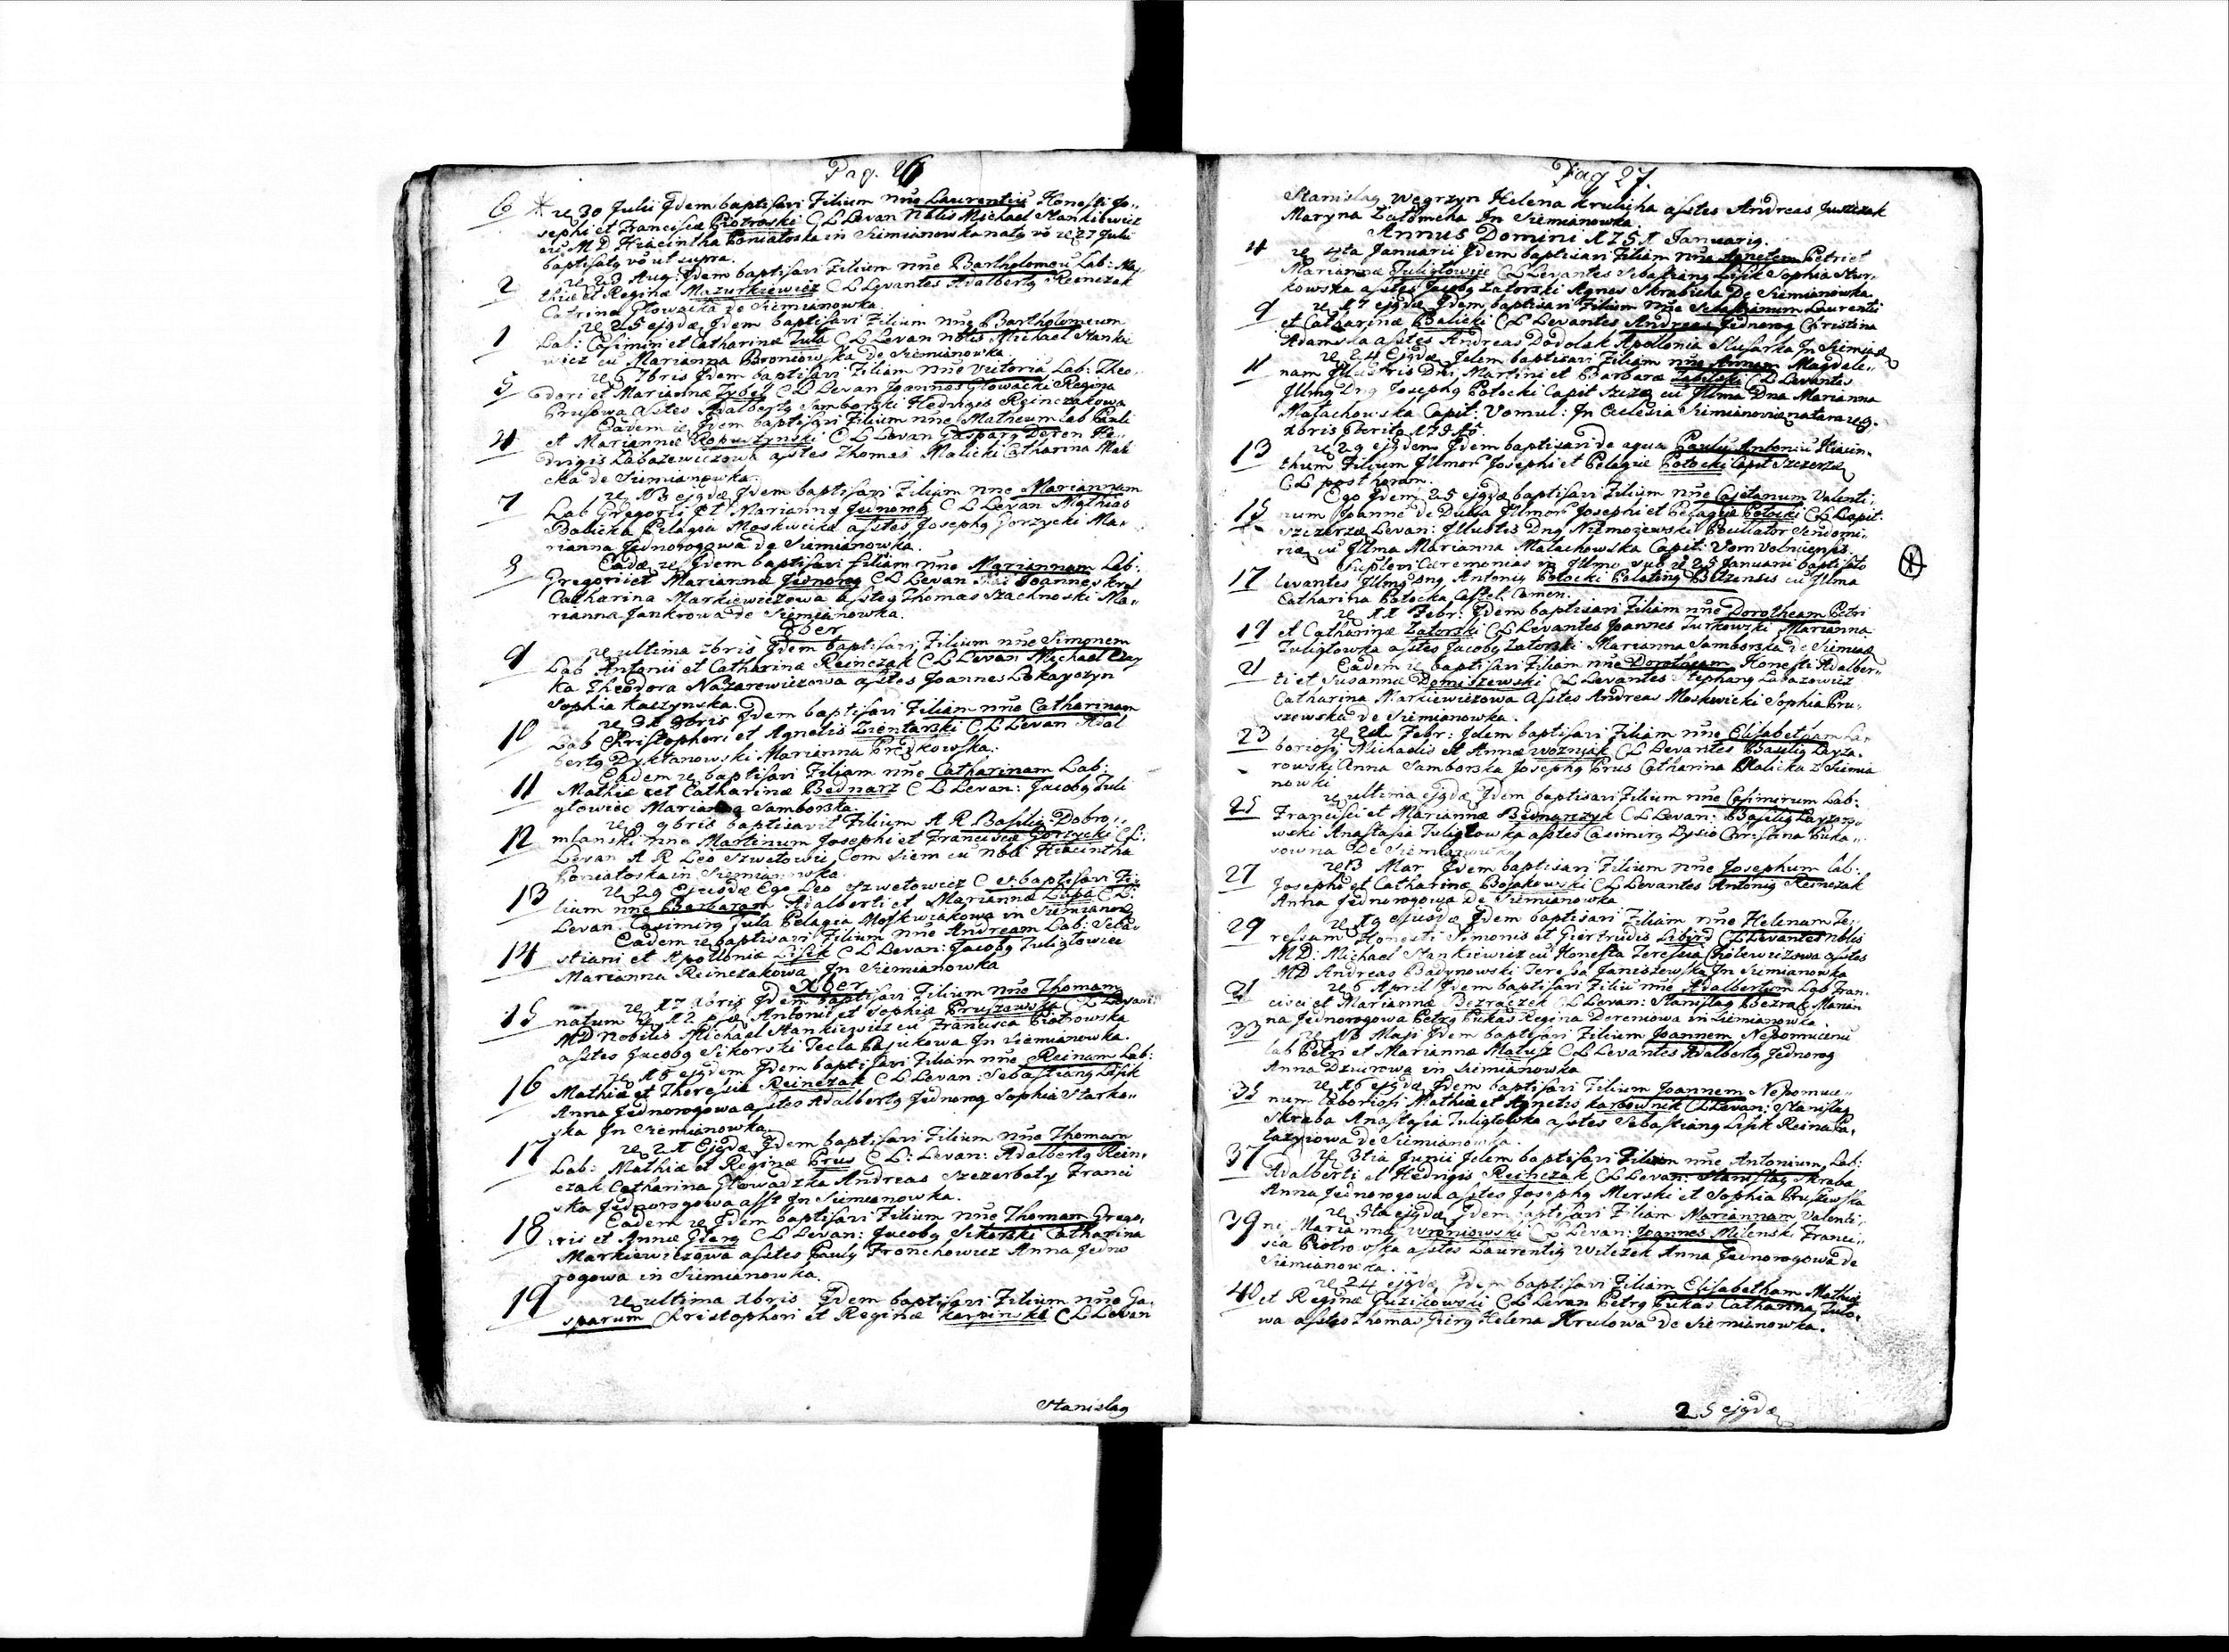 Pag. 26
6 * 30 Julii Idem baptisavi Filium nne Laurentiu Honesti Jo„
sephi et Francisca Piotroski CLLevan Nblis Michael Stankiewicz
cu MD Hiacintha Poniatoska in Siemianowka natg vo 27 Julii
baptisatg vo ut supra.
2 23 Aug: Idem baptisavi Filium nne Bartholomeu Lab: Ma„
thiæ et Reginæ Mazurkiewicz CLLevantes Adalbertg Reinczak
Catrina Głowacka de Siemianowka
1 25 ejqdæ Idem baptisavi Filium nne Bartholomeum
Lab: Casimiri et Catharinæ Juta CLLevan nblis Michael Stankie
wicz cu Marianna Boroniowska de Siemianowka.
5 6 7bris Idem baptisavi Filiam nne Victoria Lab: Theo„
dori et Mariannæ CLLevan Joannes Głowacki Regina
Prusowa Astes Adalbertg Samborski Hedvigis Reinczakowa
4 Eadem Idem baptisavi Filium nne Matheum Lab Pauli
et Mariannæ Ropuszynski CLLevan Gasparg Deren He„
dvigis Labazewiczowa astes Thomas Malicki Catharina Mali
cka de Siemianowka
7 13 ejqdæ Idem baptisavi Filiam nne Mariannam
Lab Gregorii et Marianna Jednorog CLLevan Mathias
Balicka Pelagia Moskwicka astes Josephg Gorzycki Ma„
rianna Jednorogowa de Siemianowka.
8 Eadæ Idem baptisavi filiam nne Mariannam Lab:
Gregorii et Mariannæ Jednorog CLLevan Joannes Krol
Catharina Markiewiczowa astes Thomas Szachnoski Ma„
rianna Jankrowa de Siemianowka.
8ber
9 ultima 8bris Idem baptisavi Filium nne Simonem
Lab Antonii et Catharina Reinczak CLLevan Michael Czay
ka Theodora Nazarewiczowa astes Joannes Lokayczyn
Sophia Kaczynska.
10 9bris Idem baptisavi Filiam nne Catharinam
Lab Kristophori et Agnetis Zientarski CLLevan Adal
bertg Dyktanowski Marianna Predkowska.
11 Eadem baptisavi Filiam nne Catharinam Lab:
Mathiæ et Catharinæ Bednarz CLLevan: Jacobg Juli
głowiec Marianna Samborska.
12 9 9bris baptisavit Filium A R Basilig Dobro„
mlanski nne Martinum Josephi et Francisca Gorzycki CL:
Levan A R Leo Szwetowic Com Siem cu nbli Hiacintha
Poniatoska in Siemianowka.
13 29 Ejusdæ Ego Leo Szwetowicz C S. baptisavi Fi„
lium nne Barbaram Adalberti et Marianna Lupa CL:
Levan Casimirg Juta Pelagia Moskwiakowa in Siemianow
14 Eadem baptisavi Filium nne Andream Lab: Seba„
stiani et Apollonia Lisik CLLevan: Jacobg Juligłowiec
Marianna Reinczakowa In Siemianowka
Xber
15 17 Xbris Idem baptisavi Filium nne Thomam
natum 12 Antonii et Sophiæ Pruszowski CLLevan:
MD Nobilis Michael Stankiewicz cu Francisca Piotrowska
astes Jacobg Sikorski Tecla Pasukowa In Siemianowka.
16 18 ejqdem Idem baptisavi Filiam nne Reinam Lab:
Mathiæ et Theresiæ Reinczak CLLevan: Sebastiang Lisik
Anna Jednorogowa astes Adalbertg Jednorog Sophia Starko„
ska In Siemianowka.
17 21 Ejqdæ Idem baptisavi Filium nne Thomam
Lab: Mathiæ et Reginæ Prus CL: Levan: Adalbertg Rein„
czak Catharina Głowadzka Andreas Szczerbaty Franci
ska Jednorogowa asst In Siemianowka.
18 Eadem Idem baptisavi Filium nne Thomam Grego„
ris et Annæ Gierg CLLevan: Jacobg Sikorski Catharina
Markiewiczowa astes Paulg Fronchowicz Anna Jedno
rogowa in Siemianowka.
19 ultima Xbris Idem baptisavi Filium nne Ga„
sparum Christophori et Reginæ Karpinski CLLevan
Stanislag
Pag 27.
Stanislag Węgrzyn Helena Krulicha astes Andreas Juszczak
Maryna In Siemianowka.
Annus Domini 1751 Januarig.
4 4ta Januarii Idem baptisavi Filiam nne Agnetem Petri et
Mariannæ Juligłowiec CLLevantes Sebastiang Lisik Sophia Star„
kowska astes Jacobg Zatorski Agnes Skrabicha De Siemianowka
9 17 ejqdæ Idem baptisavi Filium nne Sebastianum Laurentii
et Catharinæ Balicki CLLevantes Andreas Jednorog Christina
Adamska astes Andreas Dodolak Apollonia Slusarka In Siemia
11 24 Ejqdæ Idem baptisavi Filiam nne Annam Magdale„
nam Illustris Dni Martini et Barbaræ Zabilski CLLevantes
Illmg Dng Josephg Potocki Capit Szczez cu Illma Dna Marianna
Małachowska Capit: Vomul: In Ecclesia Siemianovia nata
Xbris
13 29 ejqdem Idem baptisavi de aqua Paulg Antoniu Hiacin„
thum Filium Illmor Josephi et Pelagiæ Potocki Capit Szczerzæ
CL post
15 Ego Idem 25 ejqdæ baptisavi Filium nne Cajetanum Valenti„
num Joanne de Dukla Illmor Josephi et Pelagiæ Potocki CL Capit.
Szczerzæ Levan: Illustris Dng Niemojewski Sendomi„
riæ, cu Illma Marianna Małachowska Capit:
17 Suplevi Cæremonias in Illmo sub 25 Januarii baptisato
levantes Illmg Dng Antonig Potocki Palating Belzensis cu Illma
Catharina Potocka Castel. Camen.
19 11 Febr: Idem baptisavi Filiam nne Dorotheam Petri
et Catharinæ Zatorski CLLevantes Joannes Turkowski Marianna
Juligłowka astes Jacobg Zatorski Marianna Samborska de Siemia
21 Eadem baptisavi Filiam nne Dorotheam Honesti Adalber„
ti et Susannæ Demiszewski CLLevantes Stephang Labazowicz
Catharina Markiewiczowa Astes Andreas Moskwicki Sophia Pru„
szewska de Siemianowka.
23 21 Febr: Idem baptisavi Filiam nne Elisabetham La„
boriosi Michaelis et Annæ Wozniak CLLevantes Basilig Layza„
rowski Anna Samborska Josephg Prus Catharina Malicka z Siemia
nowki
25 ultima ejqdæ Idem baptisavi Filium nne Casimirum Lab:
Francisci et Mariannæ Bednarczyk CLLevan: Basilig Layzoro„
wski Anastasia Juligłowka astes Casimirg Lysio Christina Puka„
sowna De Siemianowka
27 13 Mar Idem baptisavi Filium nne Josephum Lab:
Josephi et Catharinæ Bojakowski CLLevantes Antonig Reinczak
Anna Jednorogowa de Siemianowka
29 19 ejusdæ Idem baptisavi Filiam nne Helenam Te„
resiam Honesti Simonis et Giertrudis Libird CLLevantes nblis
MD: Michael Stankiewicz cu Honesta Teresia Cholewiczowa astes
MD Andreas Badynowski Teresa Janiszewska In Siemianowka
31 6 April Idem baptisavi Filiu nne Adalbertum Lab Fran„
cisci et Mariannæ Bezraczek CLLevan: Stanislag Bezrak Marian
na Jednorogowa Petrg Pukas Regina Dereniowa in Siemianowka
33 13 Maji Idem baptisavi Filium Joannem Nepomucenu
Lab Petri et Marianna Matusz CLLevantes Adalbertg Jednorog
Anna Dziurowa in Siemianowka
35 16 ejqdæ Idem baptisavi Filium Joannem Nepomuce„
num Laboriosi Mathiæ et Agnetis Karbownik CLLevan: Stanislag
Skraba Anastasia Juligłowka astes Sebastiang Lisik Reina Pa„
lazyiowa de Siemianowka.
37 3tia Junii Idem baptisavi Filium nne Antonium, Lab:
Adalberti et Hedvigis Reinczak CLLevan: Stanislag Skraba
Anna Jednorogowa astes Josephg Merski et Sophia Pruszewska
39 5ta ejqdæ Idem baptisavi Filiam Mariannam Valenti„
ni Marianna Wroniowski CLLevan: Joannes Milenski Franci„
sca Piotrowska astes Laurentig Wilczek Anna Jednorogowa de
Siemianowka.
40 24 ejqdæ Idem baptisavi Filiam Elisabetham Mathiæ
et Reginæ Guzikowski CLLevan Petrg Pukas Catharina Juto„
wa astes Thomas Gierg Helena Krulowa de Siemianowka.
25 ejqdæ